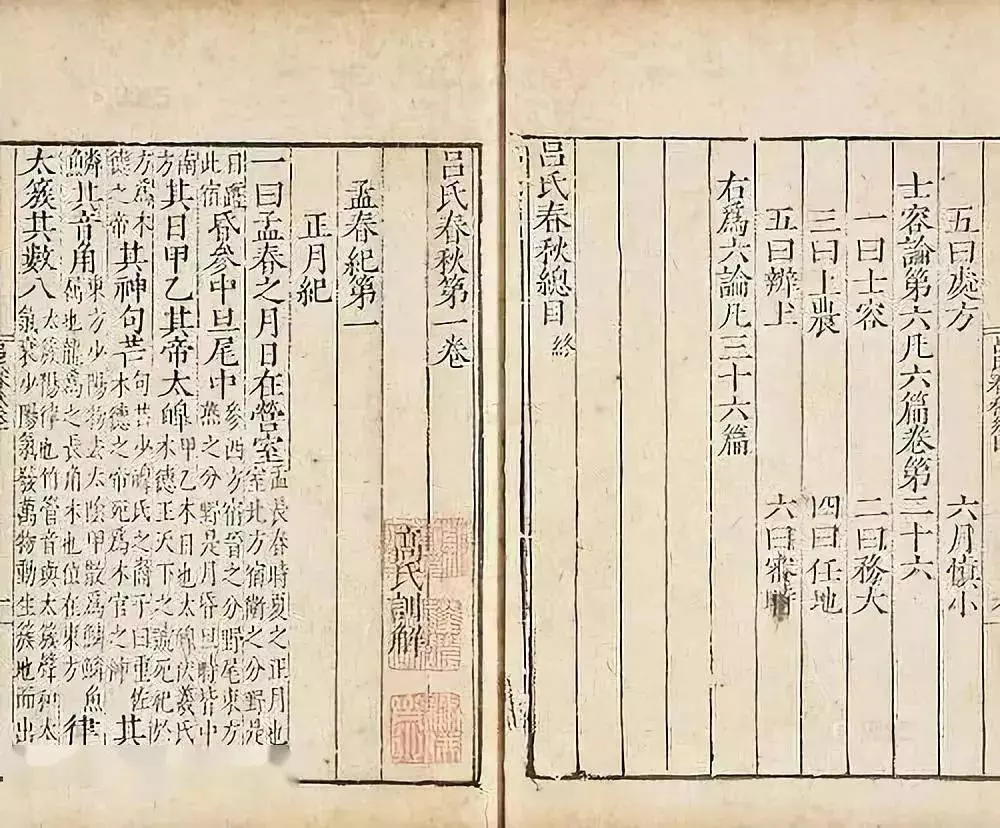 五曰處方 六月慎小
士容論第六凡六篇卷第二十六
一曰士容 二曰務大
三曰上農 四曰任地
五曰辨上 六曰審時
右爲六論凡三十六篇
呂氏春秋總目 終
呂氏春秋第一卷
高氏訓解
孟春紀第一
正月紀
一曰孟春之月日在營室孟長春時夏之正月也室北方宿衛之分野是
日躔此宿昏參中旦尾中參西方宿晉之分野尾東方燕之分野是月昏旦時皆中
南方其日甲乙其帝太皥甲乙木日也太皥伏羲氏木德王天下之號死祀於
方爲木德之帝其神句芒句芒少皥氏之裔子曰重佐木德之帝死爲木官之神其
鱗魚其音角東方少陽物去太陰甲散爲鱗鱗魚屬也龍爲之長角木也位在東方律
太簇其數八太簇陽律也竹管音與太簇聲和太氣衰少陽氣發萬物動生簇地而出